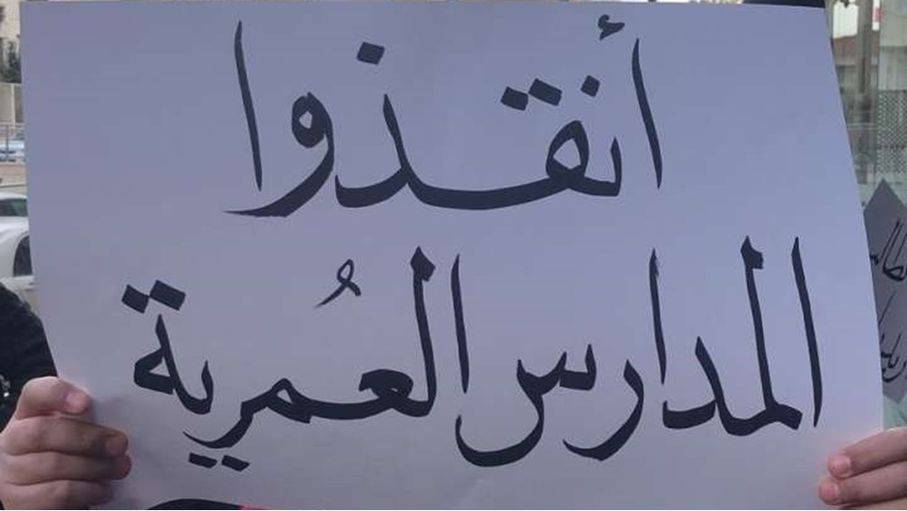 أنقذوا
المدارس العُمرية